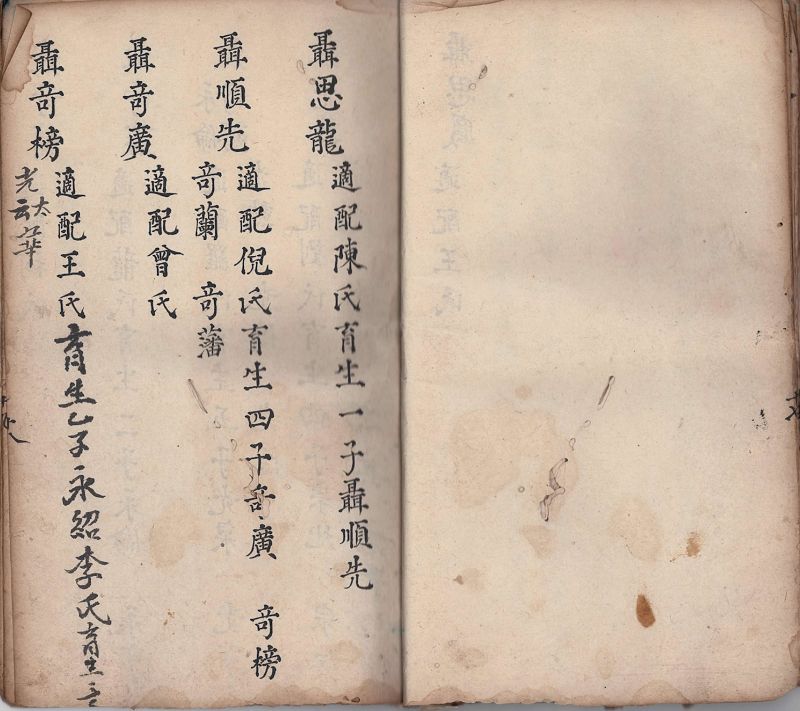 聶思龍
適配陳氏育生一子聶順先
聶順先
適配倪氏育生四子奇廣 奇榜
奇蘭 奇藩
聶奇廣
適配曾氏
聶奇榜
適配王氏育生乙子永紹李氏育生二
光太
云華